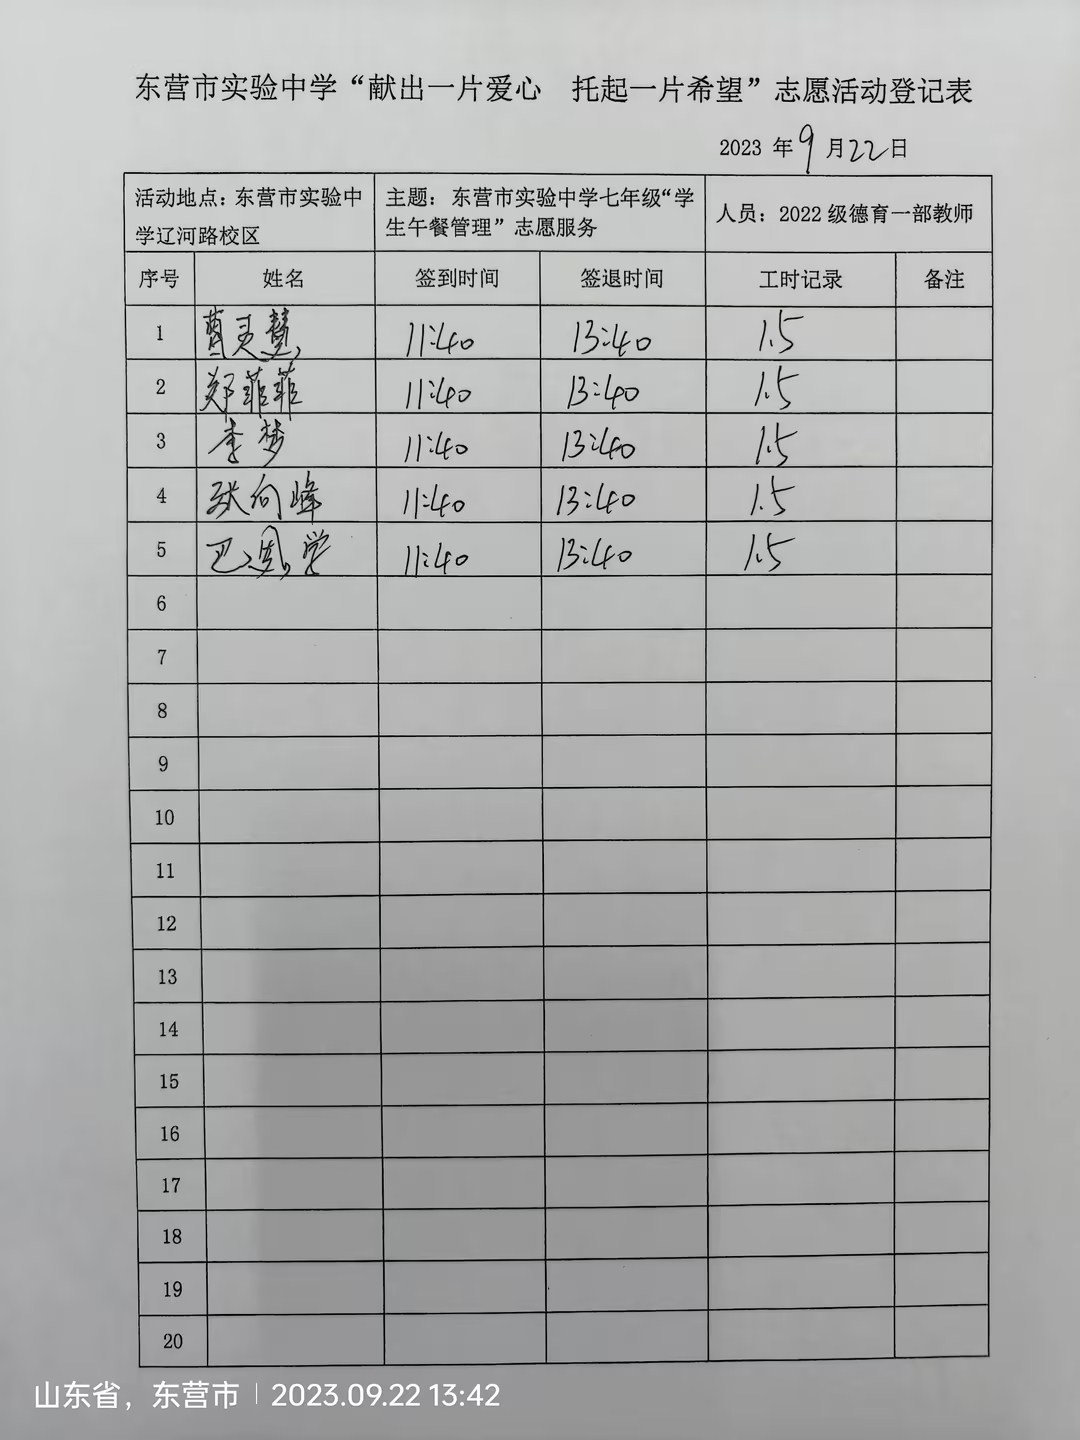 东营市实验中学“献出一片爱心 托起一片希望”志愿活动登记表
2023 年 9 月 22 日
活动地点：东营市实验中学辽河路校区 主题：东营市实验中学七年级“学生午餐管理”志愿服务 人员：2022 级德育一部教师
序号 姓名 签到时间 签退时间 工时记录 备注
1 曹灵慧 11:40 13:40 1.5
2 郑菲菲 11:40 13:40 1.5
3 李梦 11:40 13:40 1.5
4 张向峰 11:40 13:40 1.5
5 巴 学 11:40 13:40 1.5
6
7
8
9
10
11
12
13
14
15
16
17
18
19
20
山东省，东营市 | 2023.09.22 13:42